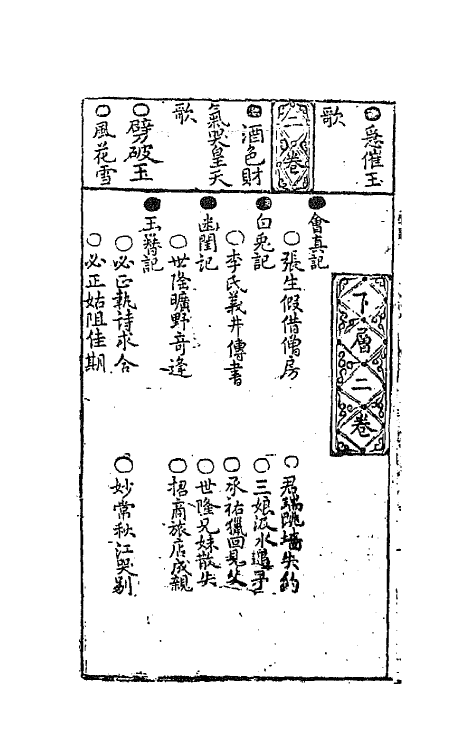 ●急催玉
歌
二卷
●酒色財
氣哭皇天
歌
○劈破玉
○風花雪
下層二卷
●會真記
○張生假借僧房
○君瑞跳墻失約
●白兎記
○三娘汲水遇子
○李氏義井傳書
○承祐獵回見父
●幽閨記
○世隆兄妹散失
○世隆曠野奇逢
○招商旅店成親
●玉簪記
○必正執詩求合
○妙常秋江哭别
○必正姑阻佳期